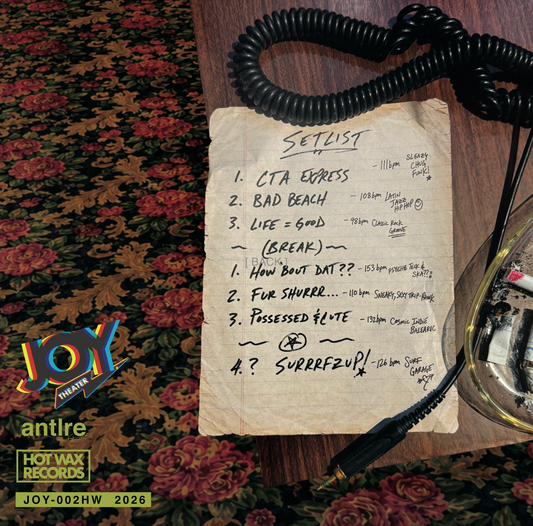 SETLIST
1. CTA EXPRESS - 111bpm SLEAZY CHUG FUNK!
2. BAD BEACH - 108bpm LATIN JAZZ HIPHOP
3. LIFE = GOOD - 98bpm CLASSIC ROCK GROOVE
~ (BREAK) ~
[BACK]
1. HOW BOUT DAT?? - 153bpm PSYCHE FUCK & SKA??
2. FUR SHURRR... - 110bpm SNEAKY, SEXY TRIP-
3. POSSESSED & CUTE - 132bpm COSMIC INDIE BALEARIC
4.? SURRRFZUP! - 126bpm SURF GARAGE
JOY
THEATER
antlre
HOT WAX
RECORDS
JOY-002HW 2026